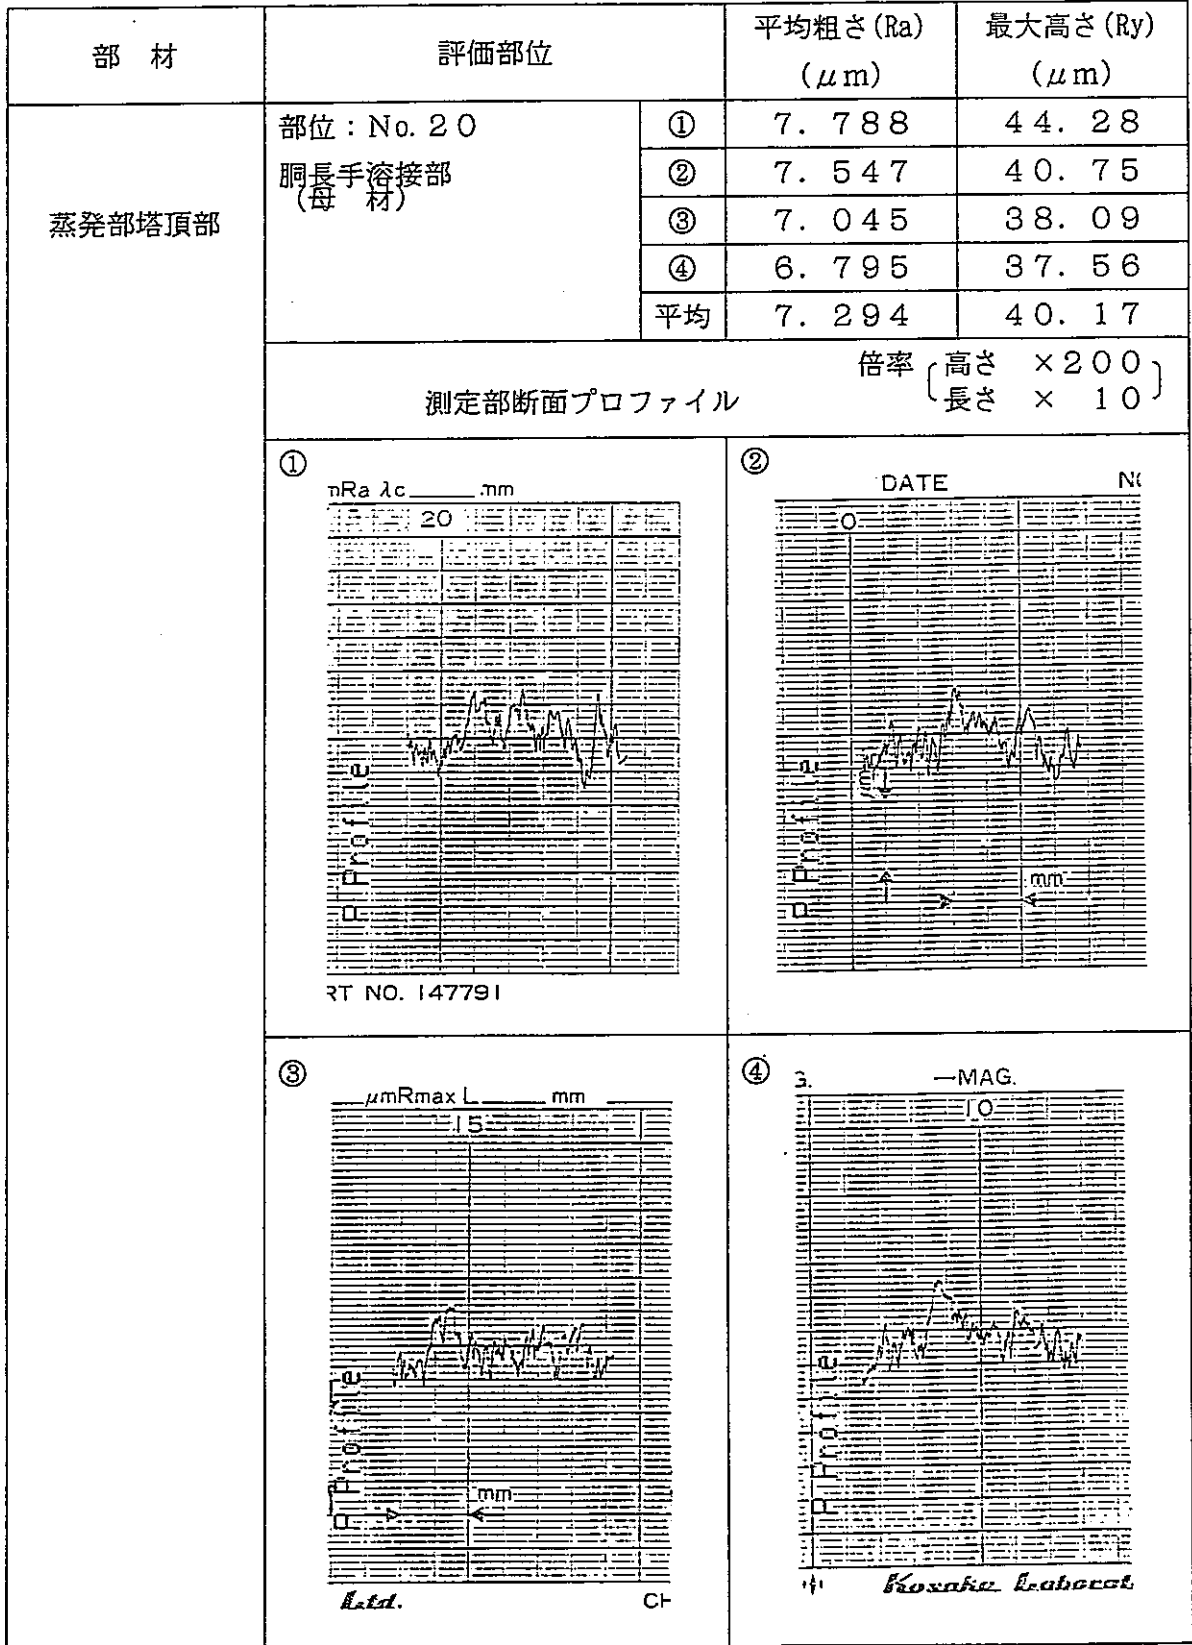 部 材 評価部位 平均粗さ(Ra) 最大高さ(Ry)
(μm) (μm)
蒸発部塔頂部
部位:No. 20
胴長手溶接部
(母 材)
① 7. 788 44. 28
② 7. 547 40. 75
③ 7. 045 38. 09
④ 6. 795 37. 56
平均 7. 294 40. 17
測定部断面プロファイル
倍率 高さ ×200
長さ × 10
①
mRa λc mm
20
P Profile
RT NO. 147791
②
DATE
0
P Profile
mm
③
μmRmax L mm
15
P Profile
mm
Ltd.
④
G. —MAG.
10
P Profile
Kosaka Laborat